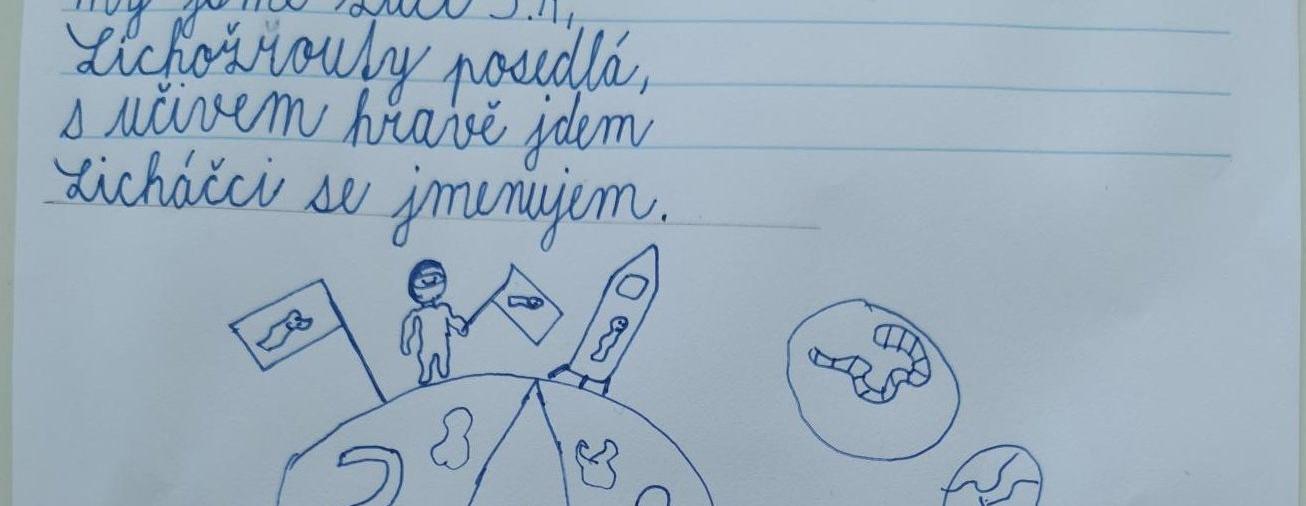 my jsme žáci
Lichožrouty posedlá,
s učivem hravě jdem
Licháčci se jmenujem.